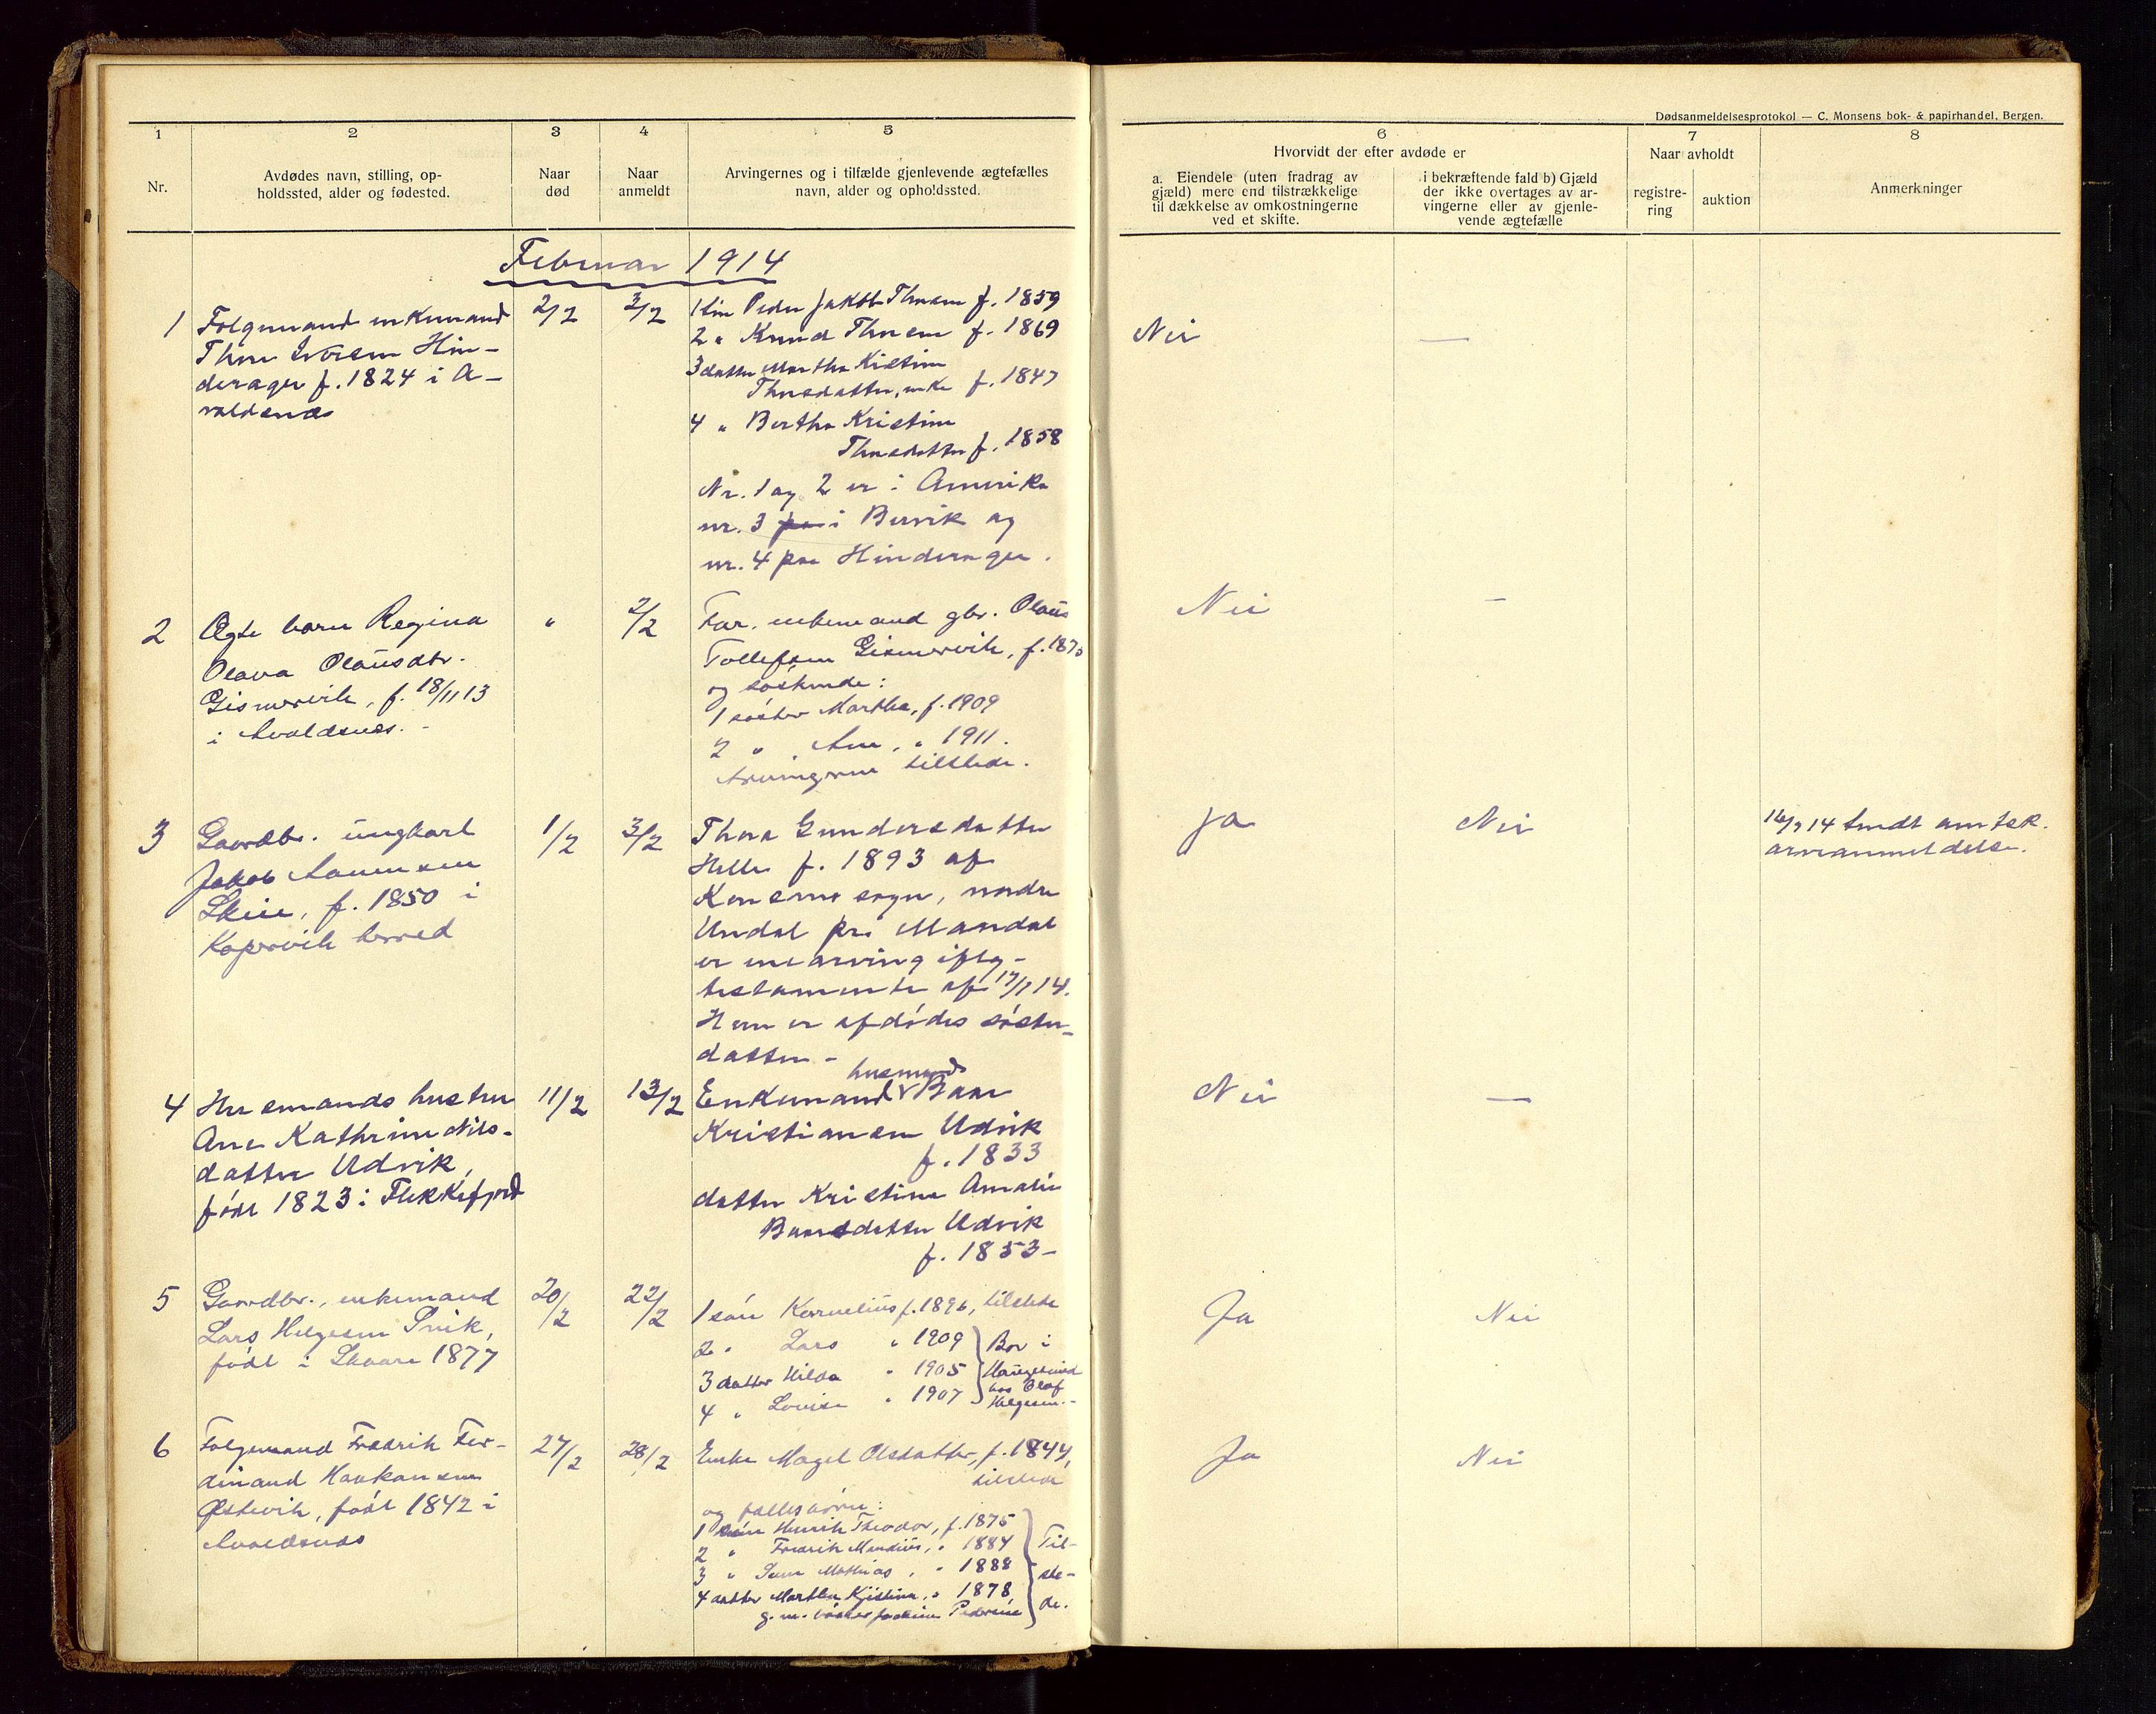 Dødsanmeldelsesprotokol — C. Monsens bok- & papirhandel, Bergen.
1 2 3 4 5 6 7 8
Nr.
Avdødes navn, stilling, op-
holdssted, alder og fødested.
Naar
død
Naar
anmeldt
Arvingernes og i tilfælde gjenlevende ægtefælles
navn, alder og opholdssted.
Hvorvidt der efter avdøde er
a. Eiendele (uten fradrag av
gjæld) mere end tilstrækkelige
til dækkelse av omkostningerne
ved et skifte.
i bekræftende fald b) Gjæld
der ikke overtages av ar-
vingerne eller av gjenle-
vende ægtefælle
Naar avholdt
registre-
ring
auktion
Anmerkninger
Februar 1914
1
Folgemand enkemand
Thore Iversen Hin-
derager f. 1824 i A-
valdsnæs
2/2
3/2
1 søn Peder Jakob Thorsen f. 1859
2 " Knud Thorsen f. 1869
3 datter Martha Kistine
Thorsdatter, enke f. 1847
4 " Bertha Kristine
Thorsdatter f. 1858
Nr. 1 og 2 er i Amerika
nr. 3 paa i Bervik og
nr. 4 paa Hinderager.
Nei —
2
Ægte barn Regina
Olava Olausdtr.
Gismervik, f. 18/11 13
i Avaldsnes. -
"
2/2
Far. enkemand gbr. Olaus
Tollefsen Gismervik, f. 1870
og søskende:
1 søster Martha, f. 1909
2 " Ane, " 1911.
Arvingerne tilstede.
Nei —
3
Gaardbr. ungkarl
Jakob
Skeie, f. 1850 i
Kopervik herred
1/2
3/2
Thora Gundersdatter
Helle f. 1893 af
Konsmo sogn, nordre
Undal pr. Mandal
er enearving iflg-
testamente af 17/1 14.
Hun er afdødes søster-
datter -
Ja Nei
16/3 14 sendt amtsk.
arveanmeldelse.
4
Husmands hustru
Ane Kathrine Nils-
datter Udvik,
født 1823 i Flekkefjord
11/2
13/2
husmand
Enkemand v Baar
Kristiansen Udvik
f. 1833
datter Kristine Amalie
Baarsdatter Udvik
f. 1853 -
Nei —
5
Gaardbr., enkemand
Lars Helgesen
født i Skaare 1877
20/2
22/2
1 søn Kornelius f. 1896, tilstede
2 " Lars " 1909
3 datter Hilda " 1905
4 " Lovise " 1907
Bor i
Haugesund
hos Olaf
Helgesen. -
Ja Nei
6
Folgemand Fredrik Fer-
dinand Haakonsen
Østevik, født 1842 i
Avaldsnes
27/2
28/2
Enke Magel Olsdatter, f. 1844,
tilstede
og fellesbørn:
1 søn Henrik Theodor, f. 1875
2 " Fredrik Mandius, " 1884
3 " Mathias, " 1888
4 datter Martha Kjistina, " 1878
g. m. Joakim Pedersen
Til-
ste-
de.
Ja Nei